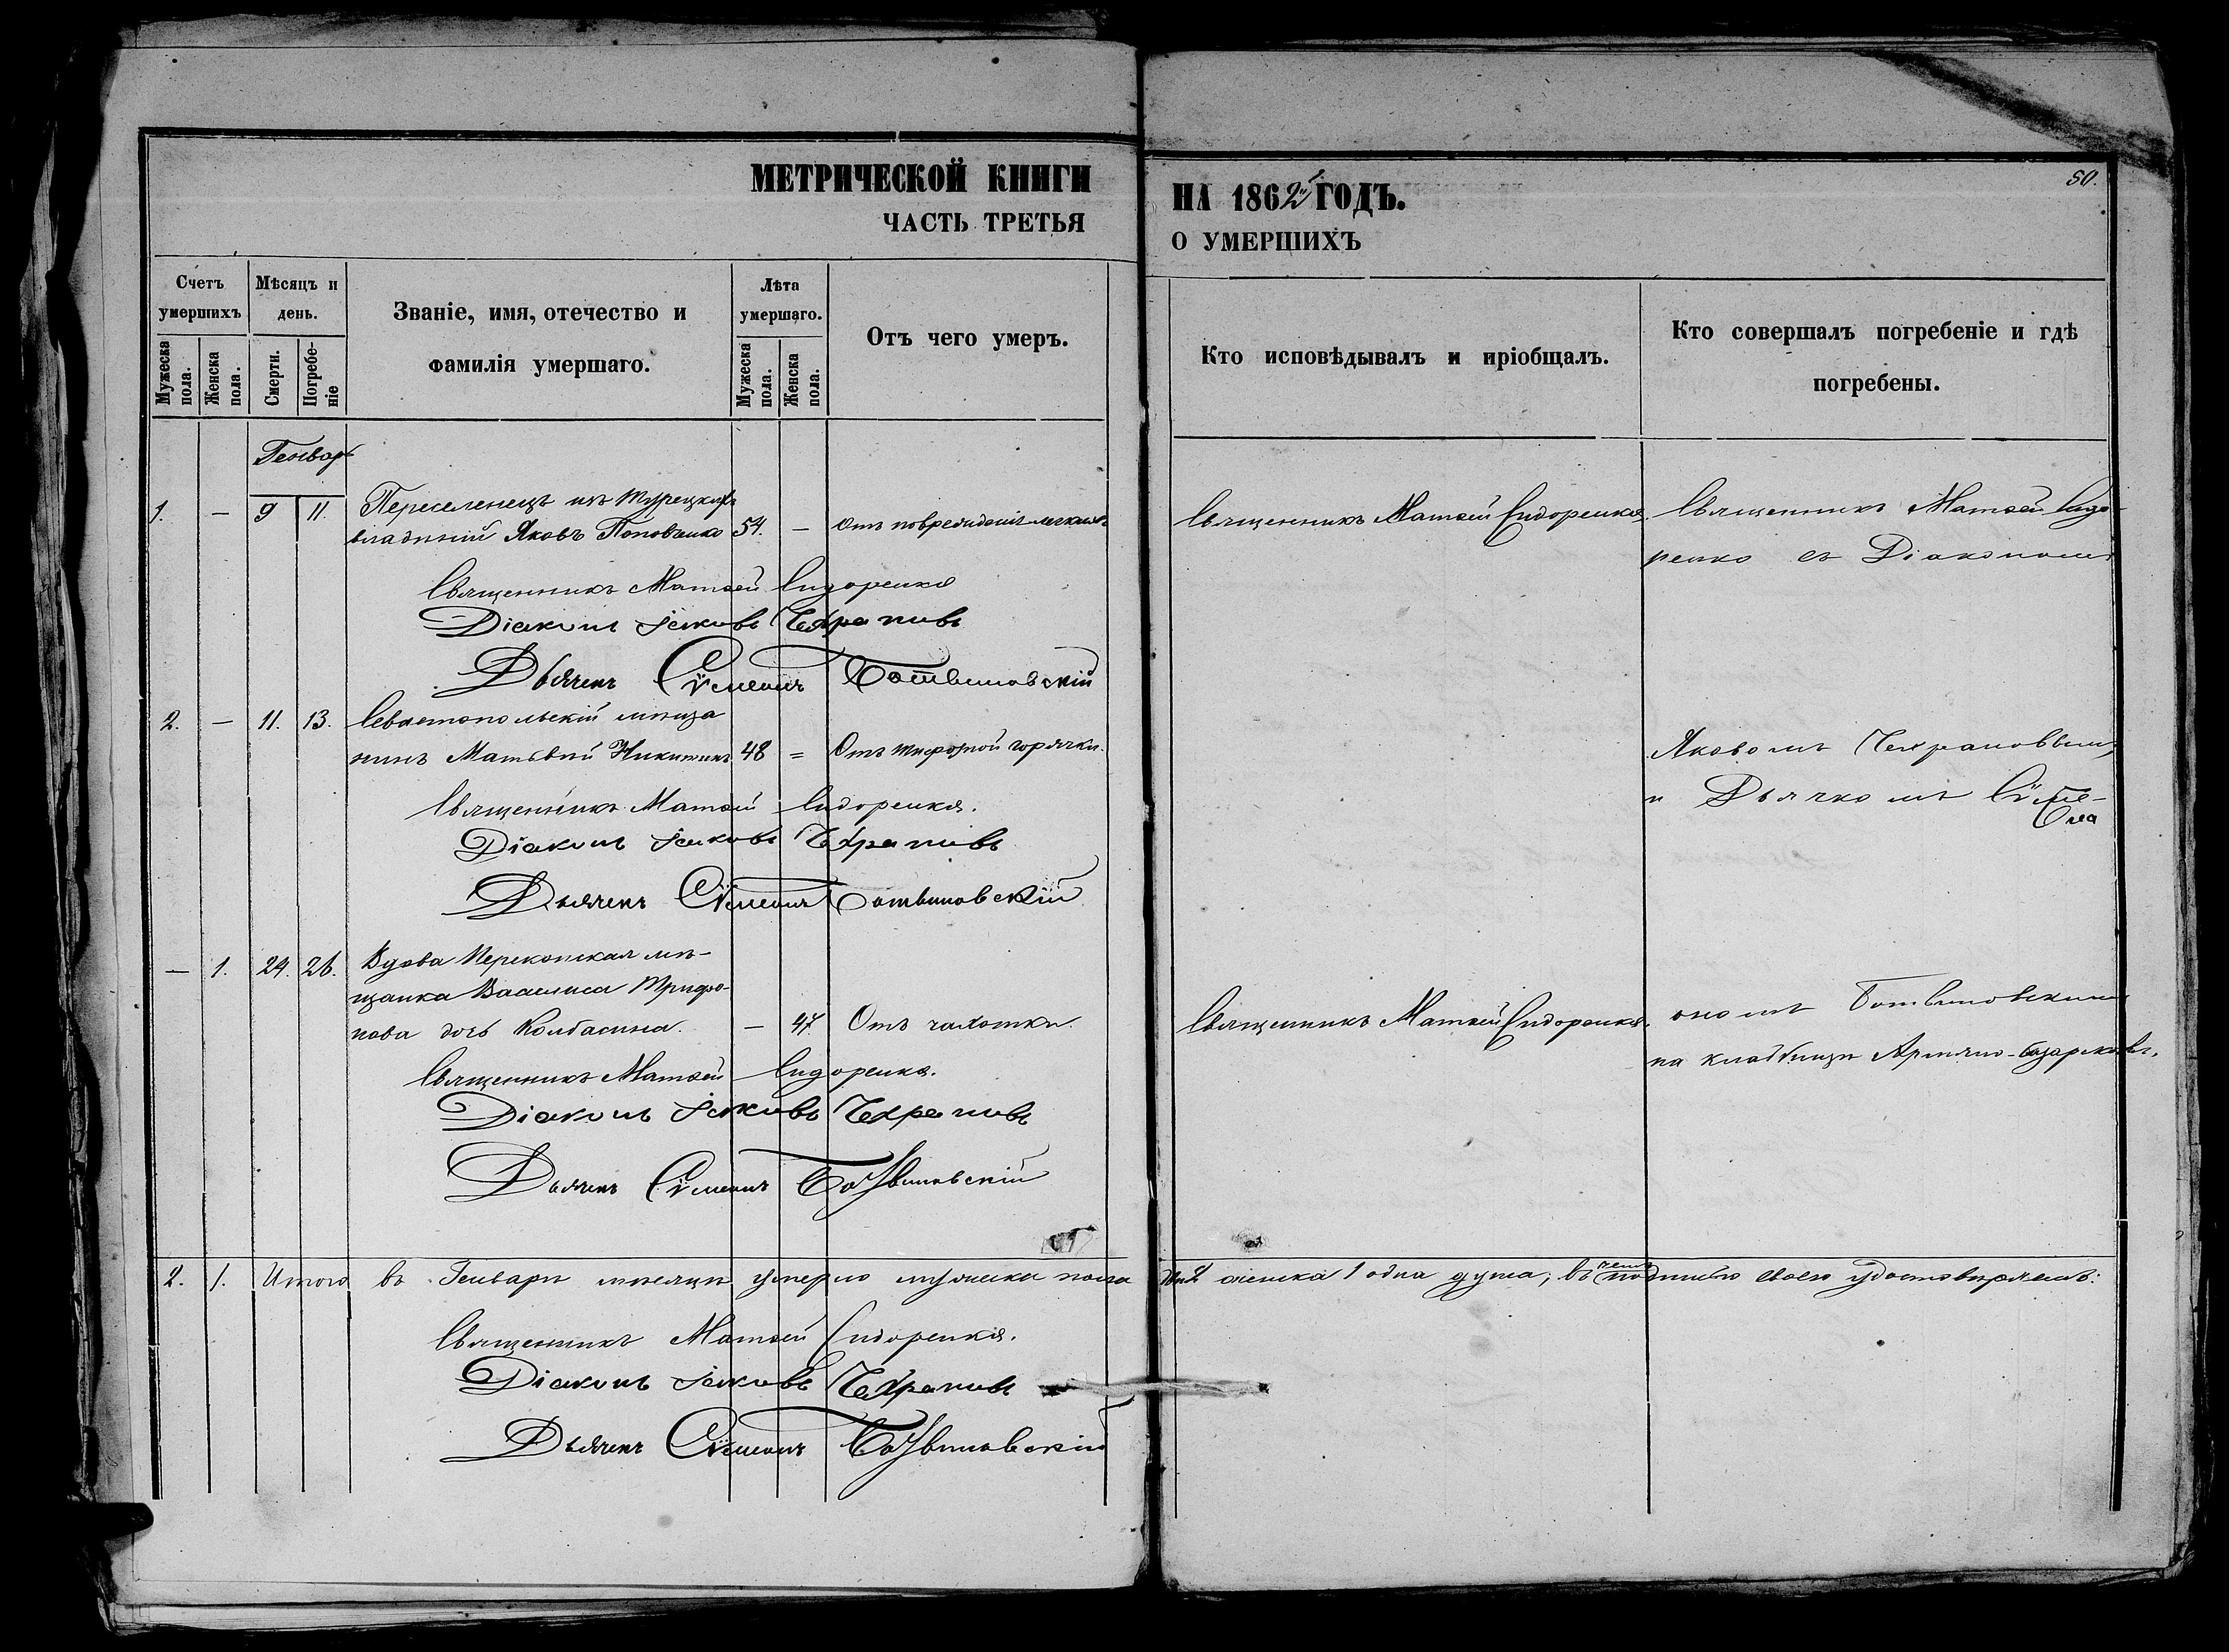 МЕТРИЧЕСКОЙ КНИГИ
ЧАСТЬ ТРЕТЬЯ
НА 1862 ГОДЪ.
О УМЕРШИХЪ
50.
Счетъ умершихъ
Мужеска пола.
Женска пола.
Мѣсяцъ и день.
Смерти.
Погребеніе
Званіе, имя, отечество и
фамилія умершаго.
Лѣта умершаго.
Мужеска пола.
Женска пола.
Отъ чего умеръ.
Кто исповѣдывалъ и пріобщалъ.
Кто совершалъ погребеніе и гдѣ
погребены.
Генварь
1. — 9 11. Переселенецъ изъ Турецкихъ
владѣній Яковъ Поповченко 54. — Отъ поврежденія легкихъ
Священникъ Матѳей Сидоренко
Священникъ Матѳей Сидо-
ренко съ Діакономъ
Священникъ Матѳей Сидоренко
Діаконъ Іаковъ Чехрановъ
Дьячекъ Сѵмеонъ Ботвиновскій
2. — 11. 13. Севастопольскій мѣща
нинъ Матвѣй Никитинъ 48 = Отъ тифозной горячки.
Яковомъ Чехрановымъ
и Дьячкомъ Сѵме-
Священникъ Матѳей Сидоренко.
Діаконъ Іаковъ Чехрановъ
Дьячекъ Сѵмеонъ Ботвиновскій
— 1. 24. 26. Вдова Перекопская мѣ-
щанка Васалиса Трифо-
нова дочь Колбасина. — 47 Отъ чахотки.
Священникъ Матѳей Сидоренко.
ономъ Ботвиновскимъ
на кладбищѣ Армяно-базарскомъ.
Священникъ Матѳей Сидоренко.
Діаконъ Іаковъ Чехрановъ
Дьячекъ Сѵмеонъ Ботвиновскій
2. 1. Итого въ Генварѣ мѣсяцѣ умерло мужеска пола 2 женска 1 одна душа; въ чемъ подписью своею удостовѣряемъ:
Священникъ Матѳей Сидоренко.
Діаконъ Іаковъ Чехрановъ
Дьячекъ Сѵмеонъ Ботвиновскій